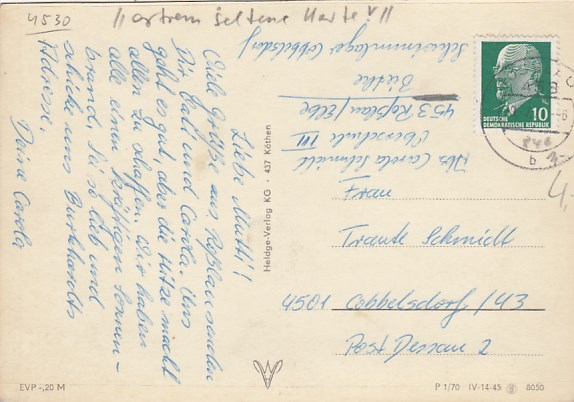 4530
extrem seltene Karte!!
Liebe Mutti!
Viele Grüße aus Roßlau senden
Dir Gabi und Carola. Uns
geht es gut, aber die Hitze macht
allen zu schaffen. Wir haben
alle einen kräftigen Sonnen-
brand. Sei so lieb und
schicke uns Burkhardts
Adresse.
Deine Carola
Heldge-Verlag KG · 437 Köthen
EVP -,20 M
Abs. Carola Schmidt
Oberschule III
453 Roßlau/Elbe
Biethe
Schwimmlager Cobbelsdorf
DEUTSCHE
DEMOKRATISCHE REPUBLIK
10
b
4,
Frau
Traute Schmidt
4501 Cobbelsdorf/43
Post Dessau 2
P 1/70 IV-14-45 8050